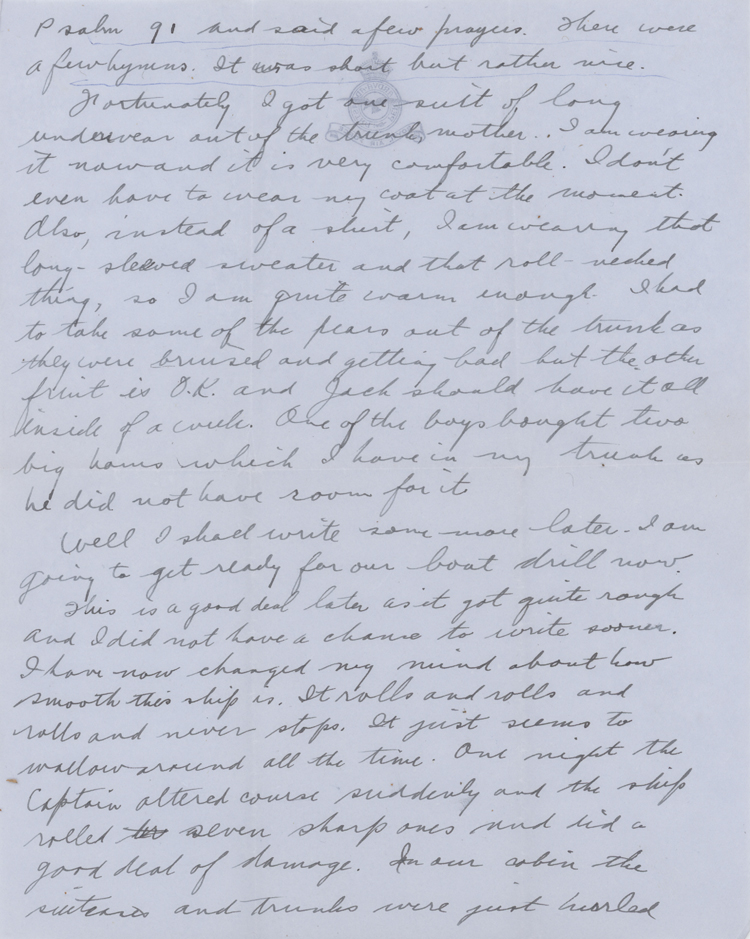 Psalm 91 and said a few prayers. There were
a few hymns. It was short but rather nice.
Fortunately I got one suit of long
underwear out of the trunk mother.. I am wearing
it now and it is very comfortable. I don't
even have to wear my coat at the moment.
Also, instead of a shirt, I am wearing that
long-sleeved sweater and that roll-necked
thing, so I am quite warm enough. I had
to take some of the pears out of the trunk as
they were bruised and getting bad but the other
fruit is O.K. and Jack should have it all
inside of a week. One of the boys bought two
big hams which I have in my trunk as
he did not have room for it
Well I shall write some more later. I am
going to get ready for our boat drill now.
This is a good deal later as it got quite rough
and I did not have a chance to write sooner.
I have now changed my mind about how
smooth this ship is. It rolls and rolls and
rolls and never stops. It just seems to
wallow around all the time. One night the
Captain altered course suddenly and the ship
rolled seven sharp ones and did a
good deal of damage. In our cabin the
suitcases and trunks were just hurled